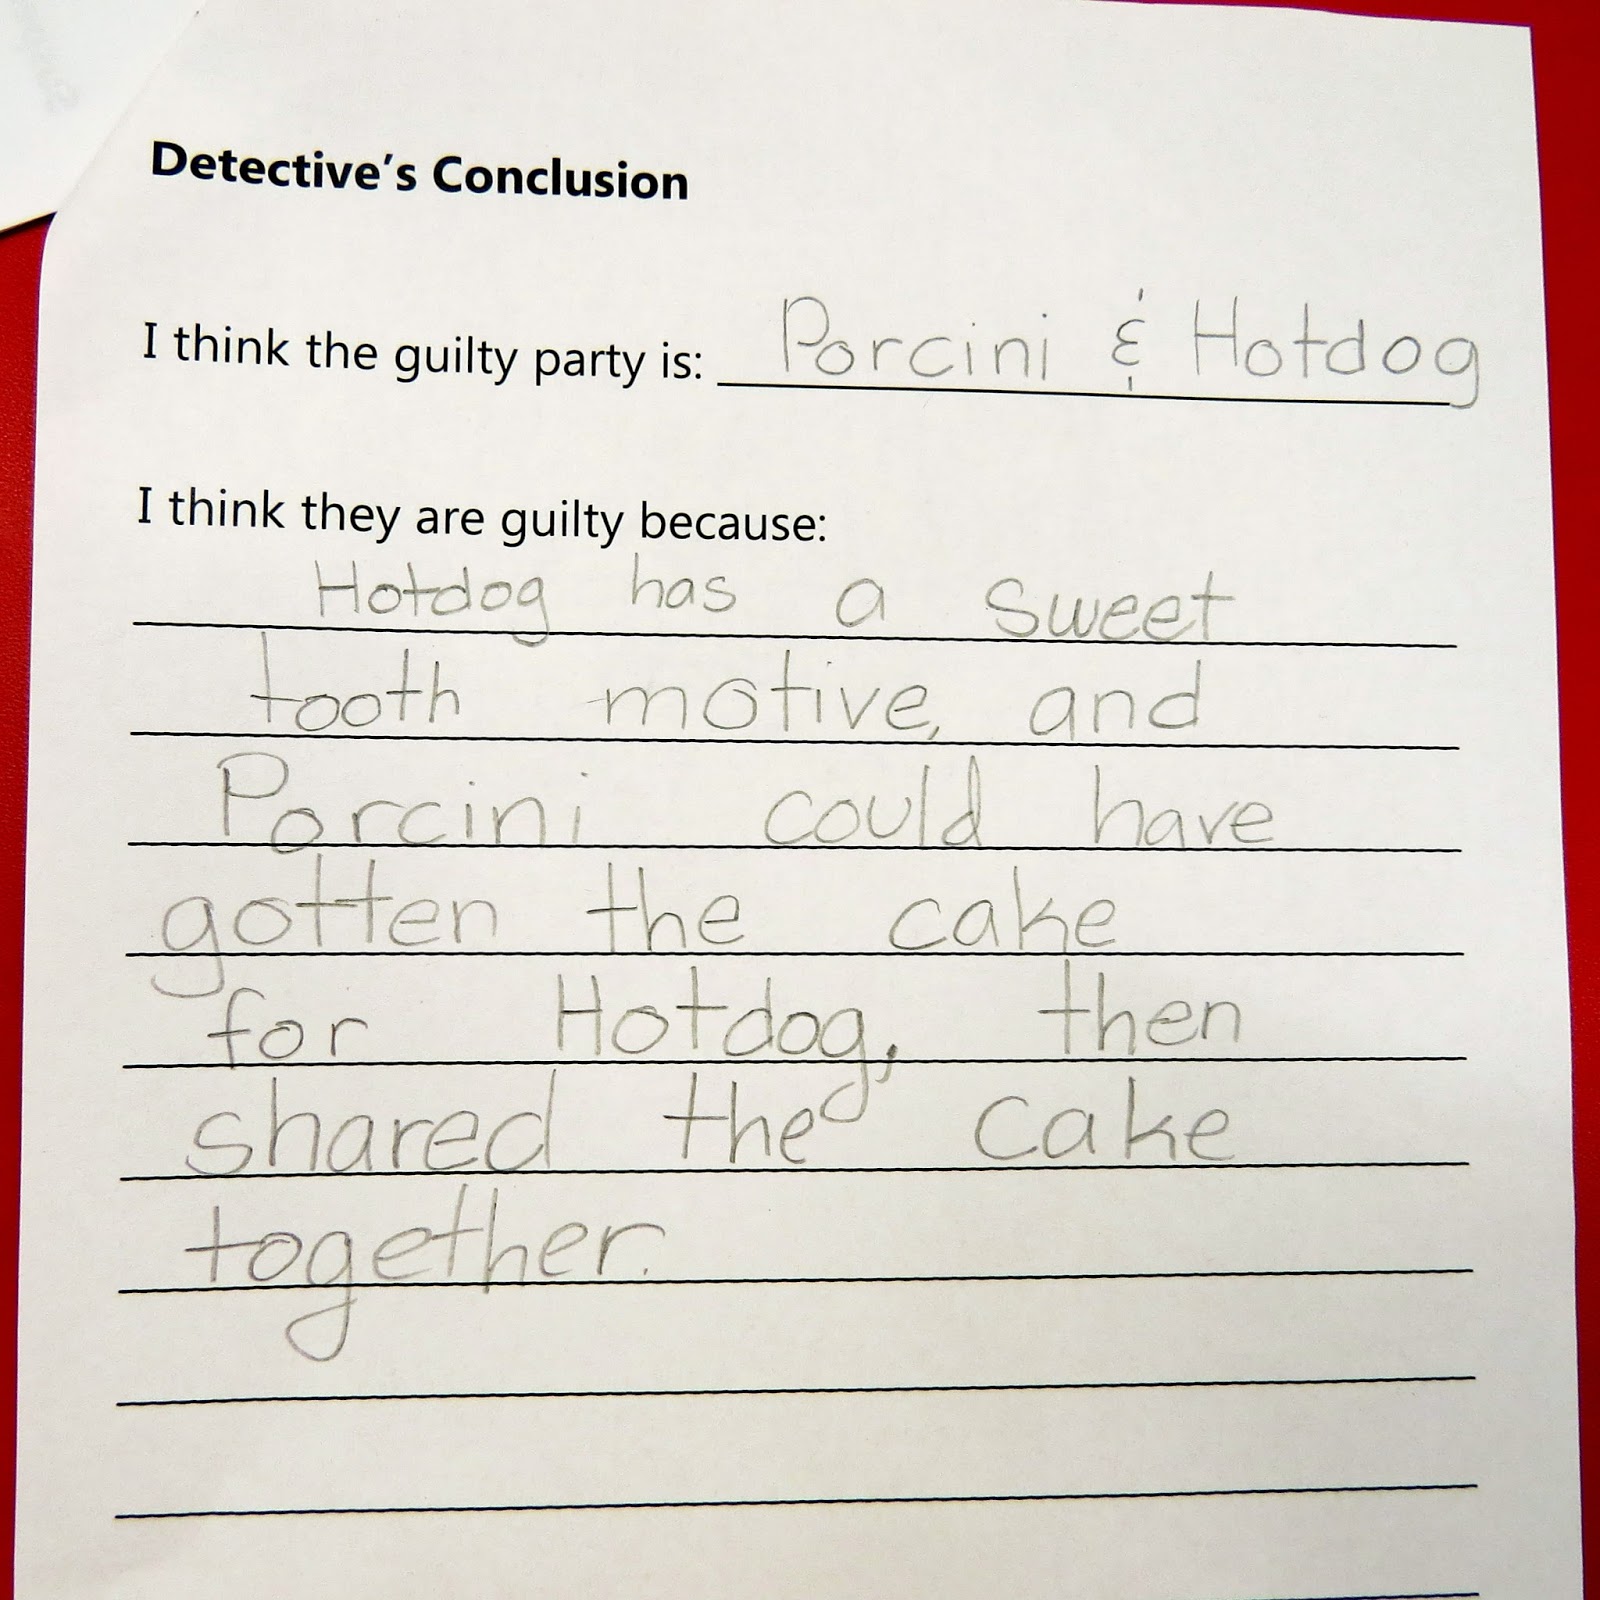 Detective's Conclusion
I think the guilty party is: Porcini & Hotdog
I think they are guilty because:
Hotdog has a sweet
tooth motive, and
Porcini could have
gotten the cake
for Hotdog, then
shared the cake
together.